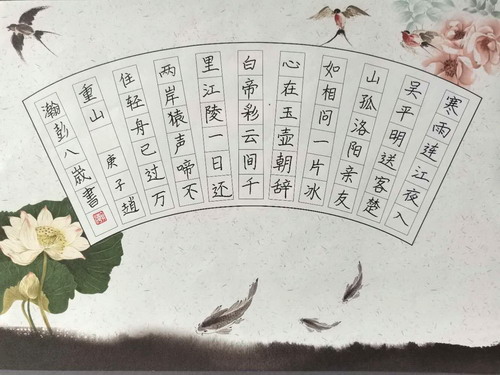 寒雨连江夜入
吴平明送客楚
山孤洛阳亲友
如相问一片冰
心在玉壶朝辞
白帝彩云间千
里江陵一日还
两岸猿声啼不
住轻舟已过万
重山 庚子趙
瀚彭八歲書